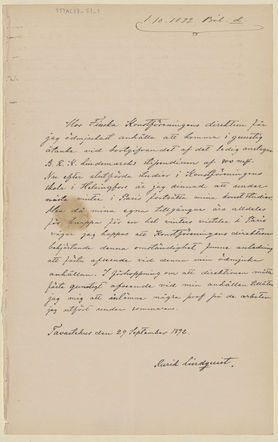 1/10 1892 Bil. d
Hos Finska Konstföreningens direktion får
jag ödmjukast anhålla att komma i gunstig
åtanke vid bortgifvandet af det ledig anslagna
B. R. R. Lindemarchs stipendium af 800 mk.
Nu efter slutförda studier i Konstföreningens
skola i Helsingfors är jag sinnad att under
nästa vinter i Paris fortsätta mina konststudier.
Men då mina egna tillgångar äro alldeles
för knappa för en hel vinters vistelse i Paris
vågar jag hoppas att Konstföreningens direktion
behjertande denna omständighet finner anledning
att fästa afseende vid denna min ödmjuka
anhållan. I förhoppning om att direktionen måtte
fästa gunstigt afseende vid min anhållan tillåter
jag mig att inlämna några prof på de arbeten
jag utfört under sommaren.
Tavastehus den 29 September 1892.
Rurik Lindqvist.